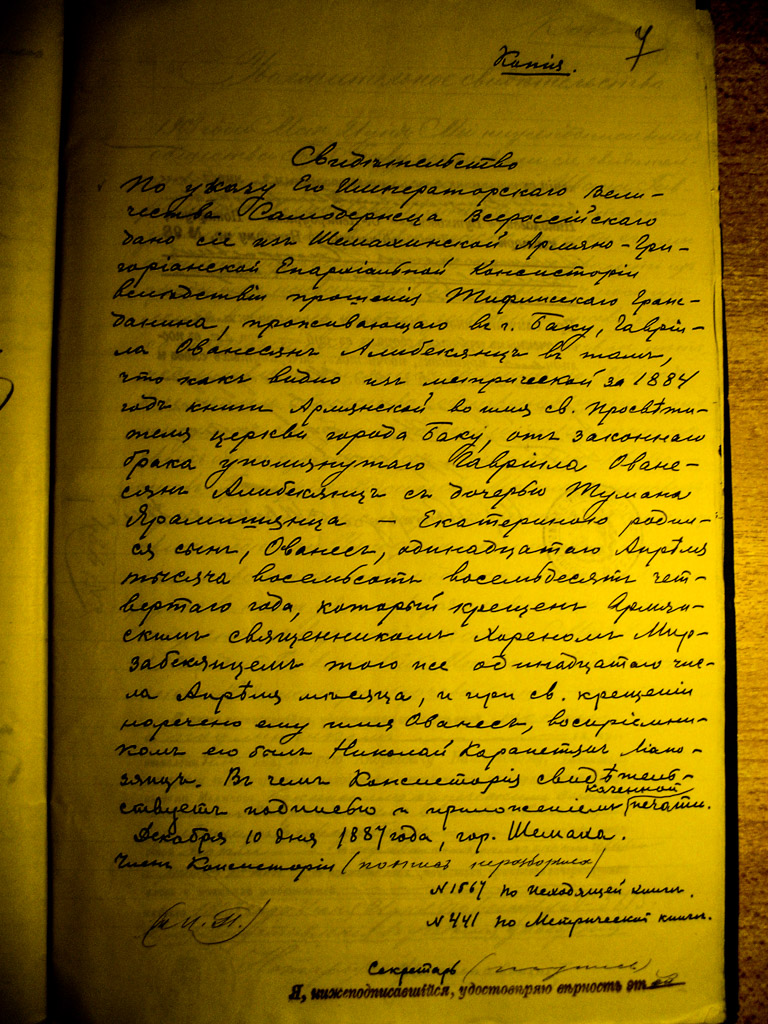 7
Копія.
Свидѣтельство
По указу Его Императорскаго Вели-
чества Самодержца Всероссійскаго
дано сіе изъ Шемахинской Армяно-Гри-
горіанской Епархіальной Консисторіи
вслѣдствіи прошенія Тифлисскаго Граж-
данина, проживающаго въ г. Баку, Гаврі-
ла Ованесянъ Алибекянцъ въ томъ,
что какъ видно изъ метрической за 1884
годъ книги Армянской во имя св. Просвѣти-
теля церкви города Баку, отъ законнаго
брака упомянутаго Гавріила Ована-
сянъ Алибекянцъ съ дочерью Тумана
Ярамишянца — Екатериною родил-
ся сынъ, Ованесъ, одинадцатаго Апрѣля
тысяча восемьсотъ восемьдесятъ чет-
вертаго года, который крещенъ Армян-
скимъ священникомъ Хореномъ Мир-
забекянцемъ того же одинадцатаго чис-
ла Апрѣля мѣсяца, и при св. крещеніи
наречено ему имя Ованесъ, воспріемни-
комъ его былъ Николай Карапетянъ
зянцъ. Въ чемъ Консисторія свидѣтель-
ствуетъ подписью и приложеніемъ казенной печати.
Декабря 10 дня 1887 года, гор. Шемаха.
Членъ Консисторіи
N 1567 по исходящей книги.
(М. П.) N 441 по Метрической книги.
Секретарь (подпись)
Я, нижеподписавшійся, удостовѣряю вѣрность эт